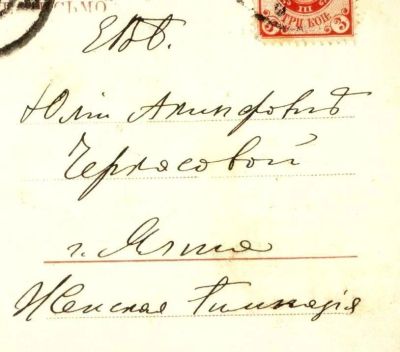 ПИСЬМО.
ТРИ КОП.
3 III 3
ЕВБ.
Юліи Акинфовнѣ
Черкасовой
г. Ялта
Женская Гимназія